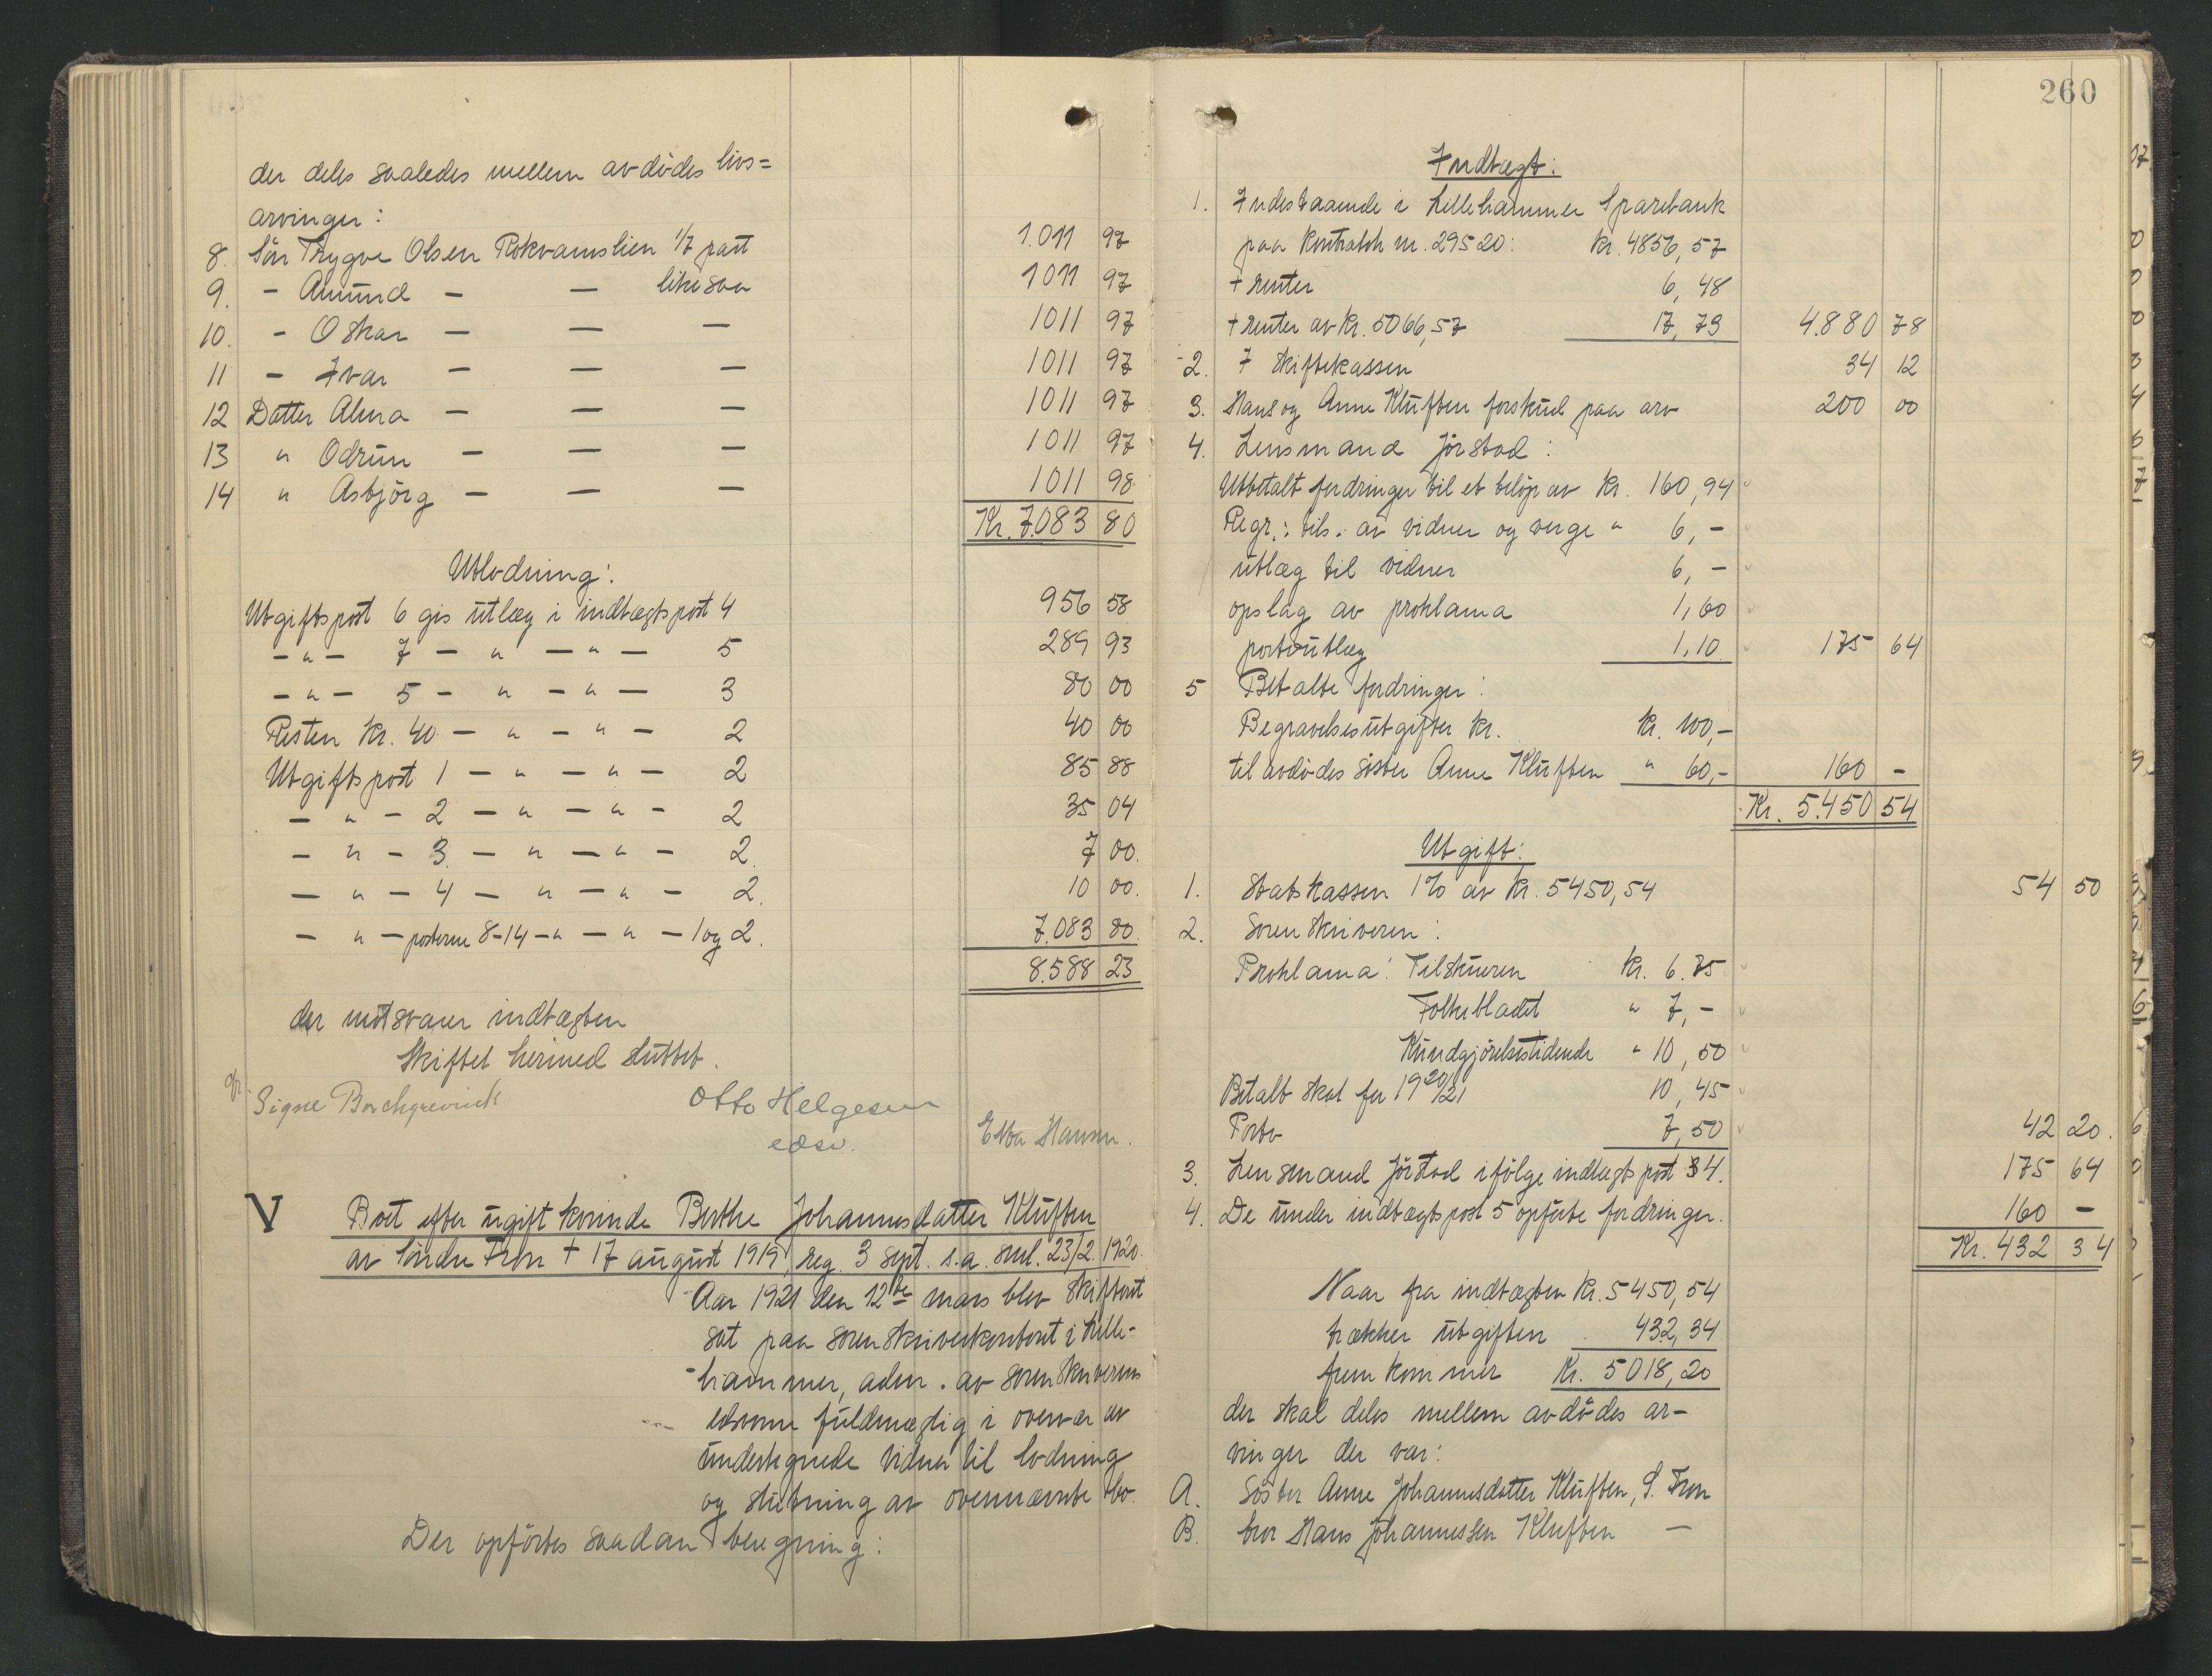 der deles saaledes mellem avdödes livs=
arvinger:
8. Sön Trygve Olsen Rokvamslien 1/7 part 1.011 97
9. - Amund - - likesaa 1011 97
10. - Oskar - - - 1011 97
11 - Ivar - - - 1011 97
12 Datter Alma - - - 1011 97
13 " Odrun - - - 1011 97
14 " Asbjörg - - - 1011 98
Kr. 7.083 80
Utlodning:
Utgiftspost 6 gis utlæg i indtægtspost 4 956 58
- " - 7 - " - " - 5 289 93
- " - 5 - " - " - 3 80 00
Resten kr. 40 - " - " - 2 40 00
Utgiftspost 1 - " - " - 2 85 88
- " - 2 - " - " - 2 35 04
- " - 3 - " - " - 2. 7 00.
- " - 4 - " - " - 2. 10 00.
- " - posterne 8-14 - " - " - 1 og 2. 7.083 80.
8.588 23
der motsvarer indtægten
Skiftet hermed sluttet.
Signe Borchgrevink Otto Helgesen Ebba Hansen.
edsv.
V Boet efter ugift kvinde Berthe Johannesdatter Kluften
av Söndre Fron † 17 august 1919, reg. 3 sept. s.a. sml. 23/2. 1920.
Aar 1921 den 12te mars blev skifteret
sat paa sorenskriverkontoret i Lille-
-hammer, adm. av sorenskriverens
edsvorne fuldmægtig i overvær av
undertegnede vidner til lodning
og slutning av ovennævnte bo.
Der opförtes saadan beregning:
260
Indtægt:
1. Indestaaende i Lillehammer Sparebank
paa kontrabok nr. 29520: kr. 4856,57
+ renter 6,48
+ renter av kr. 5066,57 17,73 4.880 78
2. I skiftekassen 34 12
3. Hans og Anne Kluften forskud paa arv 200 00
4. Lensmand Jörstad:
Utbetalt fordringer til et belöp av kr. 160,94
Regr.: tils. av vidner og verge " 6,-
utlæg til vidner 6,-
opslag av proklama 1,60
portoutlæg 1,10. 175 64
5 Betalte fordringer:
Begravelsesutgifter kr. kr. 100,-
til avdödes söster Anne Kluften " 60,- 160 -
Kr. 5.450 54
Utgift:
1. Statskassen 1% av kr. 5450,54 54 50
2. Sorenskriveren:
Proklama: Tilskueren kr. 6.75
Folkebladet " 7,-
Kundgjörelsestidende " 10,50
Betalt skat for 1920/21 10,45
Porto 7,50 42 20.
3. Lensmand Jörstad ifölge indtægtspost 4. 175 64
4. De under indtægtspost 5 opförte fordringer. 160 -
Kr. 432 34
Naar fra indtægten kr. 5450,54
trækkes utgiften 432,34
fremkommer Kr. 5018,20
der skal deles mellem avdödes ar-
vinger der var:
A. Söster Anne Johannesdatter Kluften, S. Fron
B. bror Hans Johannessen Kluften -